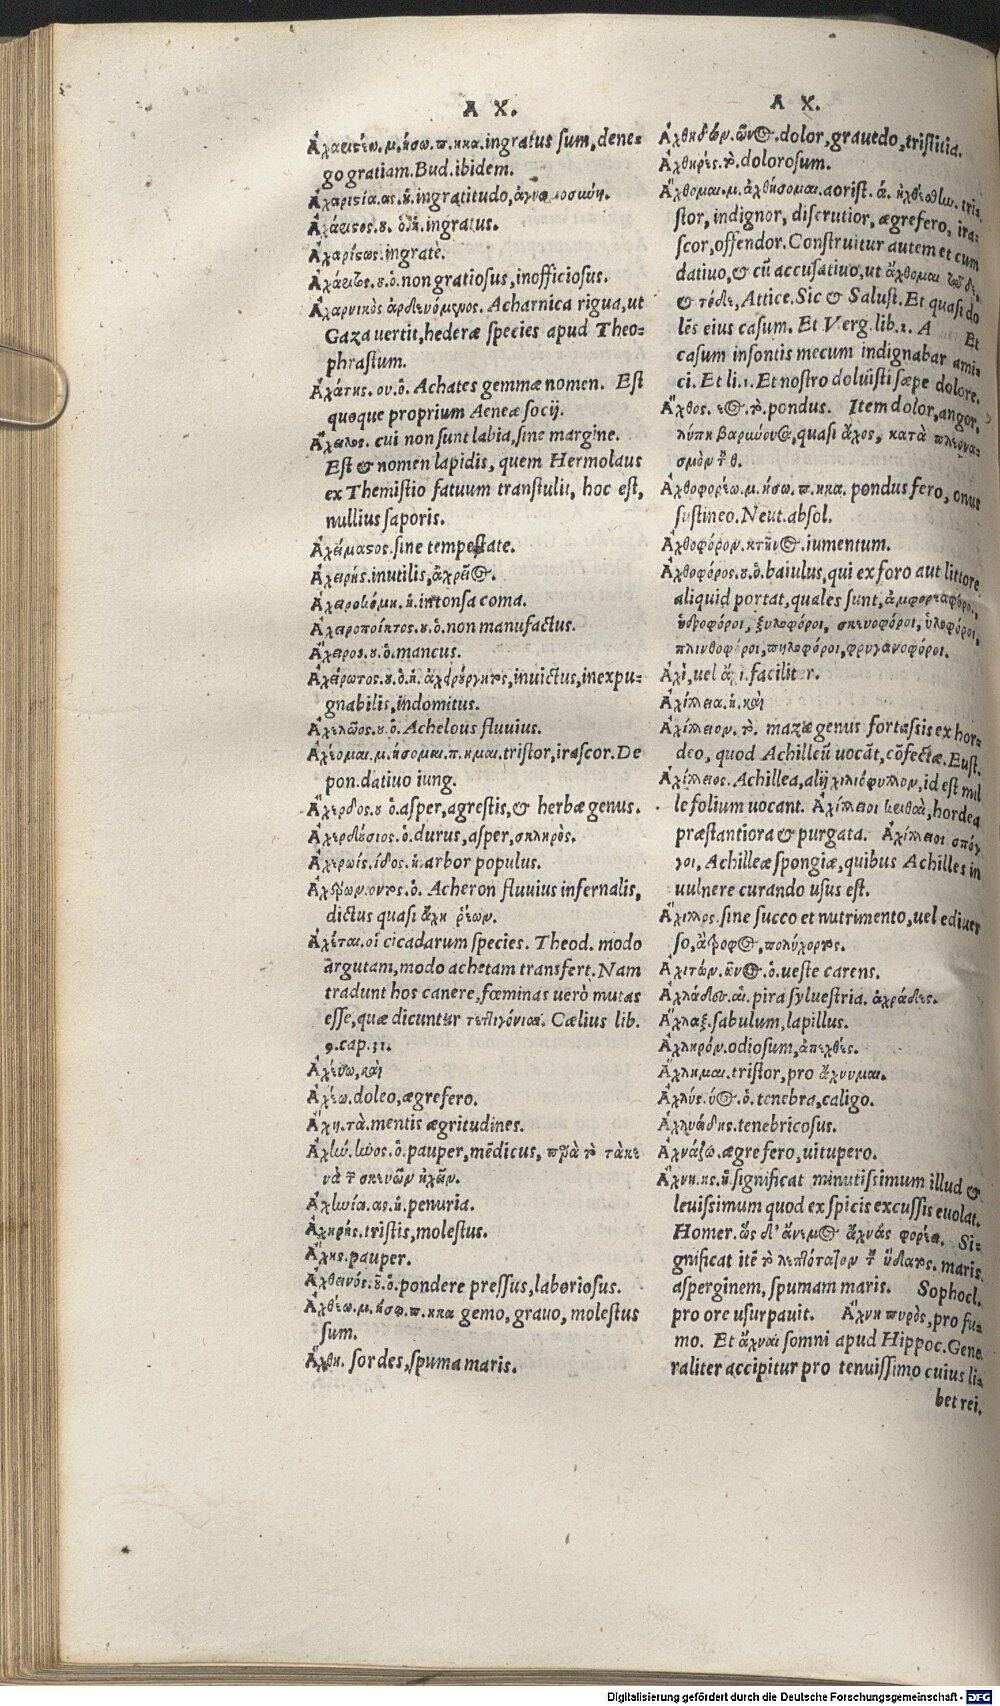 Α Χ.
Ἀχαριστέω.μ.ήσω.π.ηκα.ingratus sum, dene-
go gratiam. Bud. ibidem.
Ἀχαριστία.ας.ἡ.ingratitudo,
Ἀχάριστος.ου.ὁ.ἡ.ingratus.
Ἀχαρίστως.ingratè.
Ἀχάριτος.ου.ὁ.non gratiosus, inofficiosus.
Ἀχαρνικὸς ἀρδευόμενος. Acharnica rigua, ut
Gaza uertit, hederæ species apud Theo-
phrastum.
Ἀχάτης.ου.ὁ. Achates gemmæ nomen. Est
quoque proprium Aeneæ socij.
Ἄχειλος. cui non sunt labia, sine margine.
Est & nomen lapidis, quem Hermolaus
ex Themistio fatuum transtulit, hoc est,
nullius saporis.
Ἀχείματος.sine tempestate.
Ἀχειρής.inutilis, ἀχρεῖος.
Ἀχειροκόμη.ἡ.intonsa coma.
Ἀχειροποίητος.ου.ὁ.non manufactus.
Ἄχειρος.ου.ὁ.mancus.
Ἀχείρωτος.ου.ὁ.ἡ. invictus, inexpu-
gnabilis, indomitus.
Ἀχελῶος.ου.ὁ. Achelous fluuius.
Ἀχέομαι.μ.ήσομαι.π.ημαι.tristor, irascor. De
pon. datiuo iung.
Ἄχερδος.ου ὁ.asper, agrestis, & herbæ genus.
Ἀχερδούσιος.ὁ.durus, asper, σκληρὸς.
Ἀχερωίς.ίδος.ἡ.arbor populus.
Ἀχέρων.οντος.ὁ. Acheron fluuius infernalis,
dictus quasi ἄχη ῥέων.
Ἀχέται.οἱ cicadarum species. Theod. modo
argutam, modo achetam transfert. Nam
tradunt hos canere, fœminas uerò mutas
esse, quæ dicuntur τεττιγόνιαι. Cælius lib.
9.cap.31.
Ἀχεύω, καὶ
Ἀχέω.doleo, ægrefero.
Ἄχη.τὰ.mentis ægritudines.
Ἀχήν.ῆνος.ὁ.pauper, mēdicus, παρὰ τὸ
Ἀχηνία.ας.ἡ.penuria.
Ἀχηρής.tristis, molestus.
Ἄχης.pauper.
Ἀχθεινός.οῦ.ὁ.pondere pressus, laboriosus.
Ἀχθέω.μ.ήσω.π.ηκα gemo, grauo, molestus
sum.
Ἄχθη. sordes, spuma maris.
Α Χ.
Ἀχθηδών.όνος.dolor, grauedo, tristitia.
Ἀχθηρές.τὸ.dolorosum.
Ἄχθομαι.μ.ἀχθήσομαι.aorist. ά. ἠχθέσθην. tri-
stor, indignor, discrutior, ægrefero, ira-
scor, offendor. Construitur autem et cum
datiuo, & cū accusatiuo, ut ἄχθομαι τῷδε,
& τόδε, Attice. Sic & Salust. Et quasi do
lēs eius casum. Et Verg.lib.2. A Et
casum insontis mecum indignabar ami-
ci. Et li.1. Et nostro doluisti sæpe dolore.
Ἄχθος. εος.τὸ.pondus. Item dolor, angor,
λύπη βαρύνουσα, quasi ἄχος, κατὰ πλεονα-
σμὸν τοῦ θ.
Ἀχθοφορέω.μ.ήσω.π.ηκα. pondus fero, onus
sustineo. Neut. absol.
Ἀχθοφόρον.κτῆνος.iumentum.
Ἀχθοφόρος.ου.ὁ.baiulus, qui ex foro aut littore
aliquid portat, quales sunt,
ὑδροφόροι, ξυλοφόροι, σκευοφόροι, ὑλοφόροι,
πλινθοφόροι, πηλοφόροι, φρυγανοφόροι.
Ἀχὶ, uel facilit r.
Ἀχίλλεια.ἡ.καὶ
Ἀχίλλειον.τὸ. mazæ genus fortassis ex hor-
deo, quod Achilleū uocāt, cōfectæ. Eust.
Ἀχίλλειος. Achillea, alij χιλιόφυλλον, id est mil
le folium uocant. Ἀχίλλειοι κριθαὶ, hordea
præstantiora & purgata. Ἀχίλλειοι σπόγ
γοι, Achilleæ spongiæ, quibus Achilles in
uulnere curando usus est.
Ἄχιλος.sine succo et nutrimento, uel ediuer
so, ἄτροφος, πολύχορτος.
Ἀχίτων.ωνος.ὁ.ueste carens.
Ἀχλάδες.αἱ.pira syluestria. ἀχράδες.
Ἄχλαξ.sabulum, lapillus.
Ἀχληρόν.odiosum, ἀπεχθές.
Ἄχλημαι.tristor, pro ἄχνυμαι.
Ἀχλύς.ύος.ὁ.tenebra, caligo.
Ἀχλυώδης.tenebricosus.
Ἀχνάζω.ægre fero, uitupero.
Ἄχνη.ης.ἡ.significat minutissimum illud &
leuissimum quod ex spicis excussis euolat.
Homer. ὡς δ' ἄνεμος ἄχνας φορέει. Si-
gnificat itē τὸ λεπτότατον τοῦ ὕδατος. maris
asperginem, spumam maris. Sophocl.
pro ore usurpauit. Ἄχνη πυρὸς, pro fu-
mo. Et ἄχναι somni apud Hippoc. Gene
raliter accipitur pro tenuissimo cuius li-
bet rei.
Digitalisierung gefördert durch die Deutsche Forschungsgemeinschaft - DFG